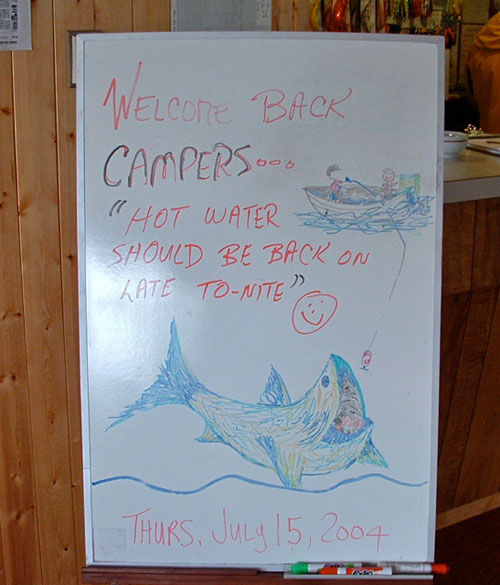 WELCOME BACK
CAMPERS...
"HOT WATER
SHOULD BE BACK ON
LATE TO-NITE"
THURS, JULY 15, 2004
EXPO